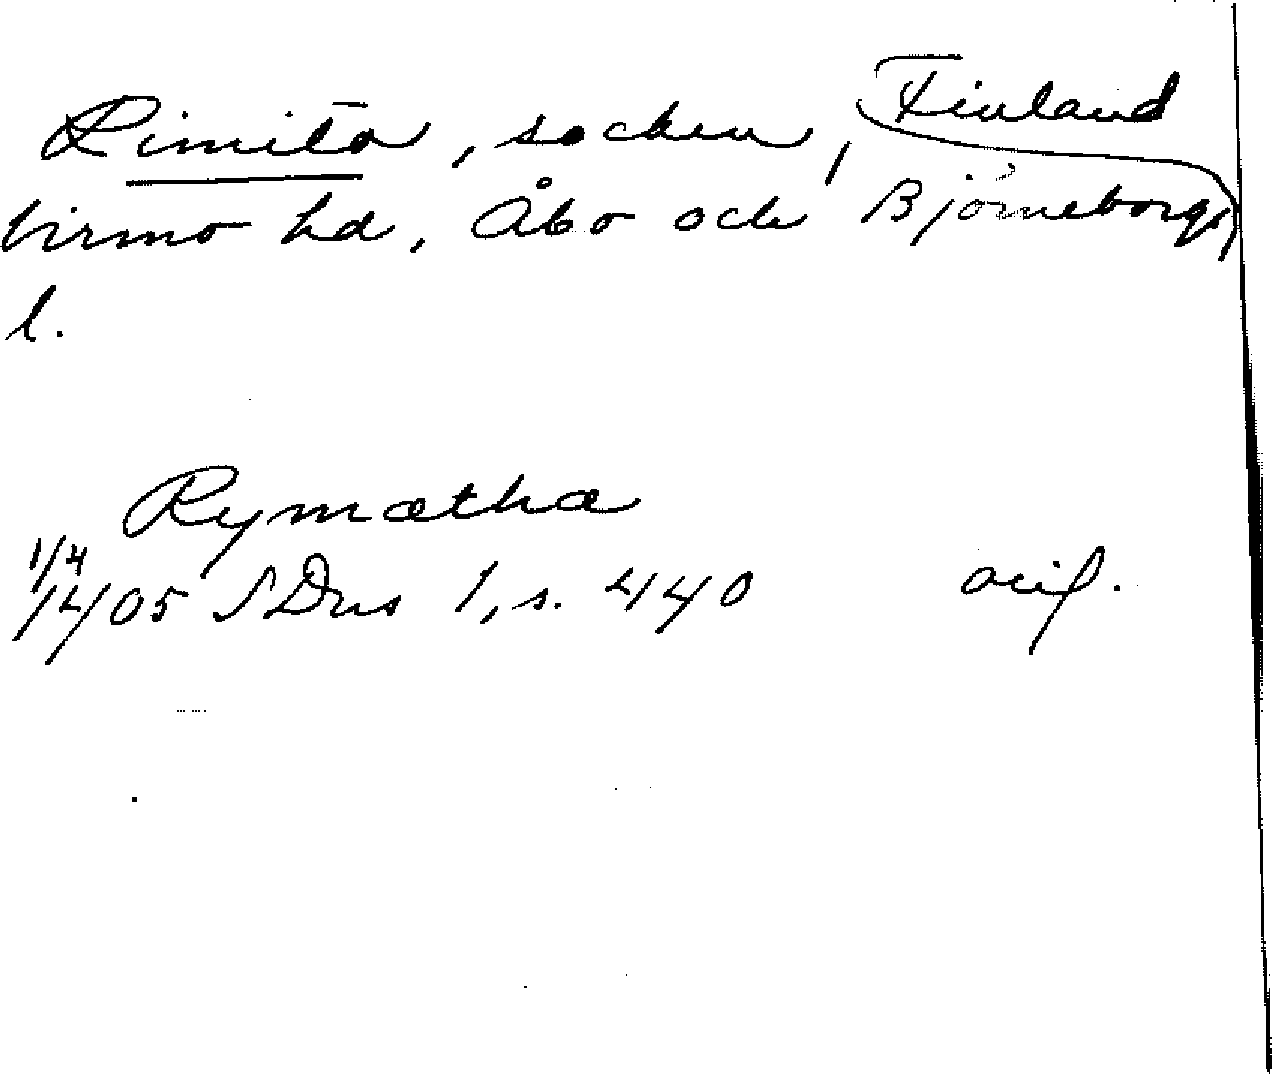 Rimito, socken, Finland
Virmo hd, Åbo och Björneborgs
l.
Rymætha
1/4
1405 SDns 1, s. 440 orig.